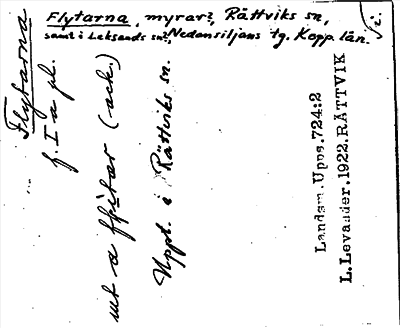 Flytarna, myrar?, Rättviks sn,
samt i Leksands sn?, Nedansiljans tg. Kopp. län.
Flytarna
f. I a pl.
ut a flitar (ack.)
Uppt. i Rättviks sn.
Landsm. Upps. 724:2
L. Levander. 1922. RÄTTVIK